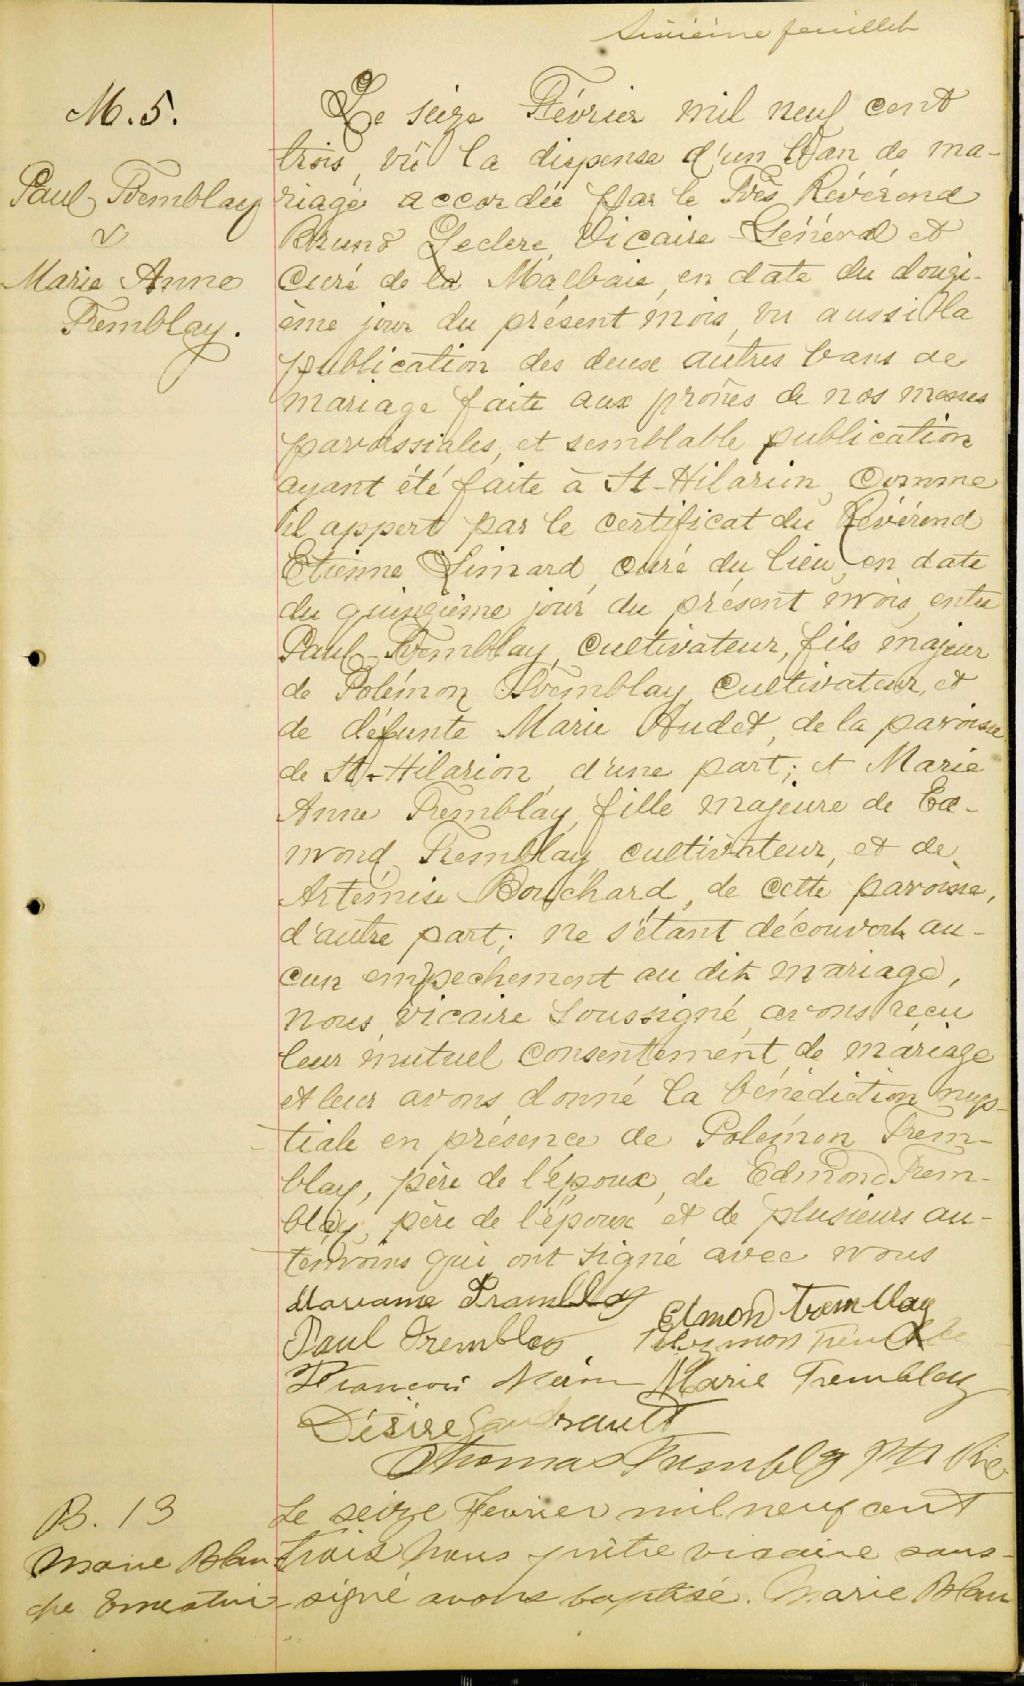 Sixième feuillet
M. 5.
Paul Tremblay
&
Marie Anne
Tremblay.
Le seize Février mil neuf cent
trois, vû la dispense d'un ban de ma-
riage accordée par le Très Révérend
Bruno Leclerc, Vicaire Général et
Curé de la Malbaie, en date du douzi-
ème jour du présent mois, vu aussi la
publication des deux autres bans de
mariage faite aux prônes de nos messes
paroissiales, et semblable publication
ayant été faite à St-Hilarion, comme
il appert par le certificat du Révérend
Etienne Simard, curé du lieu, en date
du quinzième jour du présent mois, entre
Paul Tremblay, cultivateur, fils majeur
de Polémon Tremblay, cultivateur, et
de défunte Marie Audet, de la paroisse
de St-Hilarion, d'une part; et Marie
Anne Tremblay, fille majeure de Ed-
mond Tremblay cultivateur, et de
Artémise Bouchard, de cette paroisse,
d'autre part; ne s'étant découvert au-
cun empechement au dit mariage,
nous, vicaire soussigné, avons reçu
leur mutuel consentement de mariage
et leur avons donné la bénédiction nup-
tiale en présence de Polémon Trem-
blay, père de l'époux, de Edmond Trem-
blay, père de l'épouse et de plusieurs au-
temoins qui ont signé avec nous
Mariame Tramblay Edmond trem blay
Paul Tremblay
François Marie Tremblay
Désiré Gaudreault
Thomas Tremblay Ptr Vic
B. 13
Marie Blan
che Ernestin
Le seize Février mil neuf cent
trois nous prêtre vicaire sous-
signé avons baptisé Marie Blan